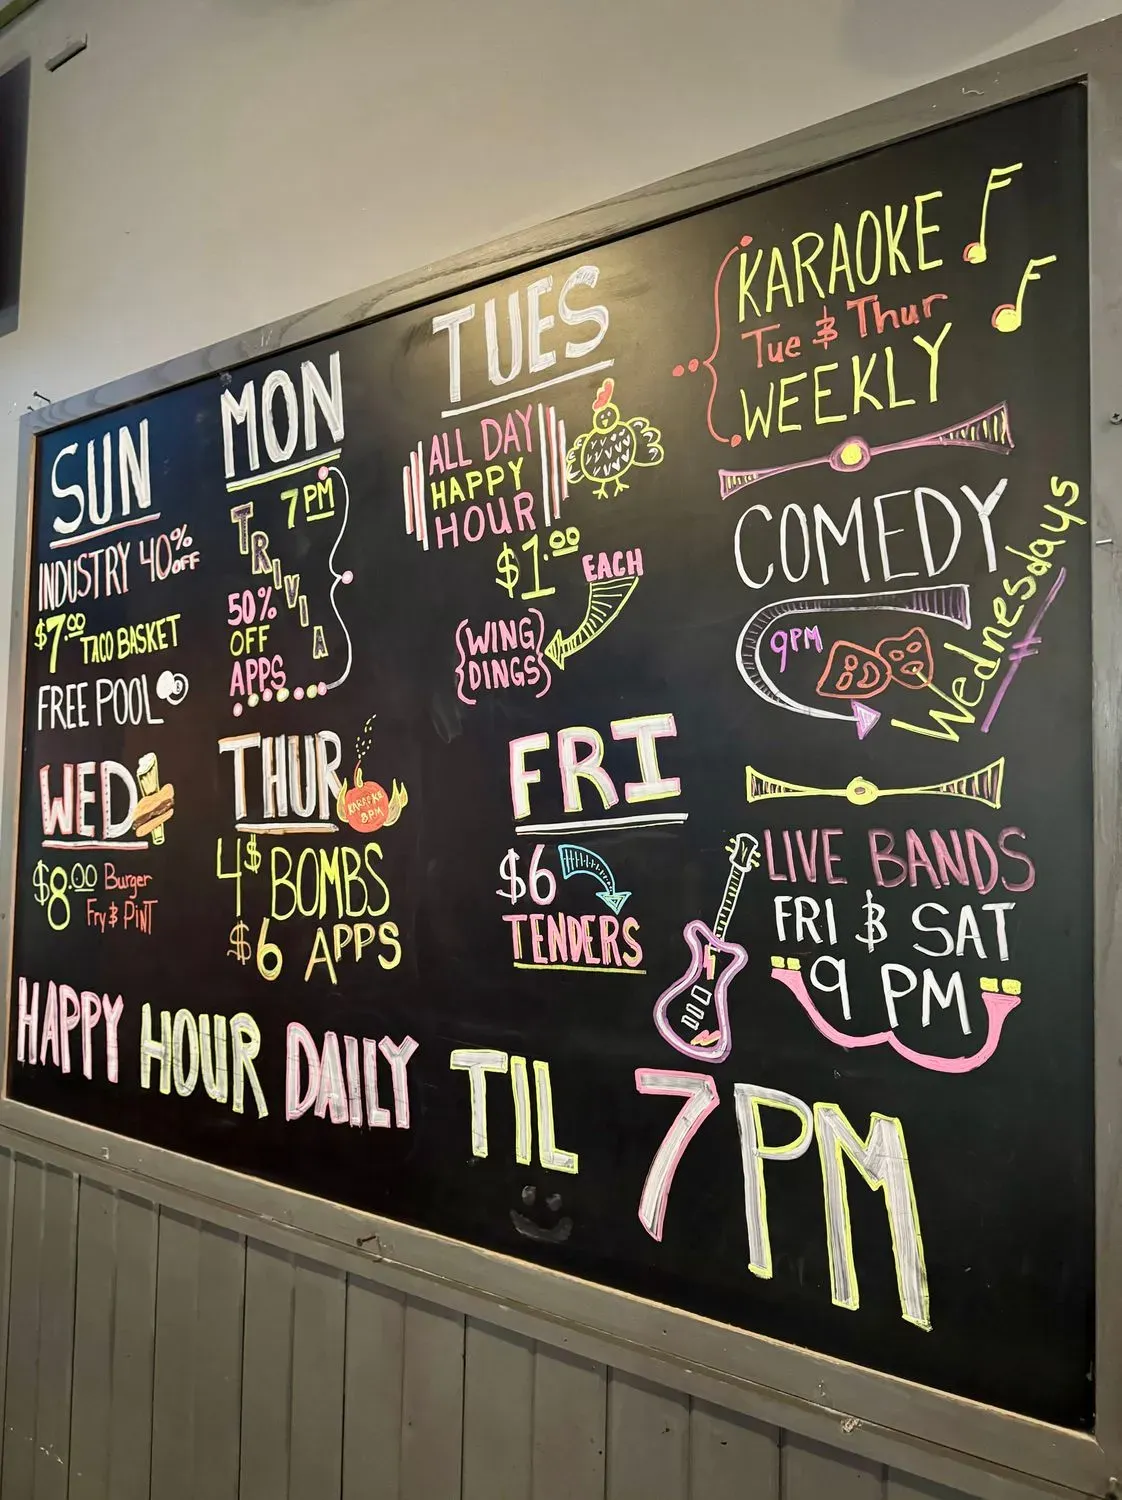 SUN
INDUSTRY 40% OFF
$7.00 TACO BASKET
FREE POOL
MON
7PM
TRIVIA
50%
OFF
APPS
TUES
ALL DAY
HAPPY
HOUR
$1.00
EACH
{WING
DINGS}
KARAOKE
Tue & Thur
WEEKLY
COMEDY
Wednesdays
9PM
WED
$8.00 Burger
Fry & PiNT
THUR
KARAOKE
8PM
4$ BOMBS
$6 APPS
FRI
$6
TENDERS
LIVE BANDS
FRI & SAT
9 PM
HAPPY HOUR DAILY TIL 7PM